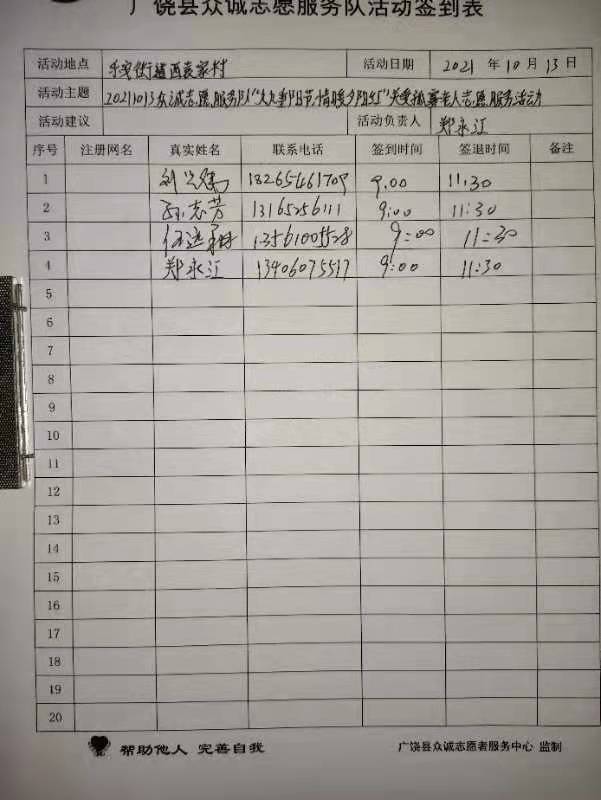 广饶县众诚志愿服务队活动签到表
活动地点 乐安街道西袁家村 活动日期 2021 年 10 月 13 日
活动主题 20211013众诚志愿服务队“九九重阳节,情暖夕阳红”关爱孤寡老人志愿服务活动
活动建议 活动负责人 郑永江
序号 注册网名 真实姓名 联系电话 签到时间 签退时间 备注
1 18265461709 9:00 11:30
2 孙志芳 9:00 11:30
3 9:00 11:30
4 郑永江 13406075517 9:00 11:30
5
6
7
8
9
10
11
12
13
14
15
16
17
18
19
20
帮助他人 完善自我 广饶县众诚志愿者服务中心 监制